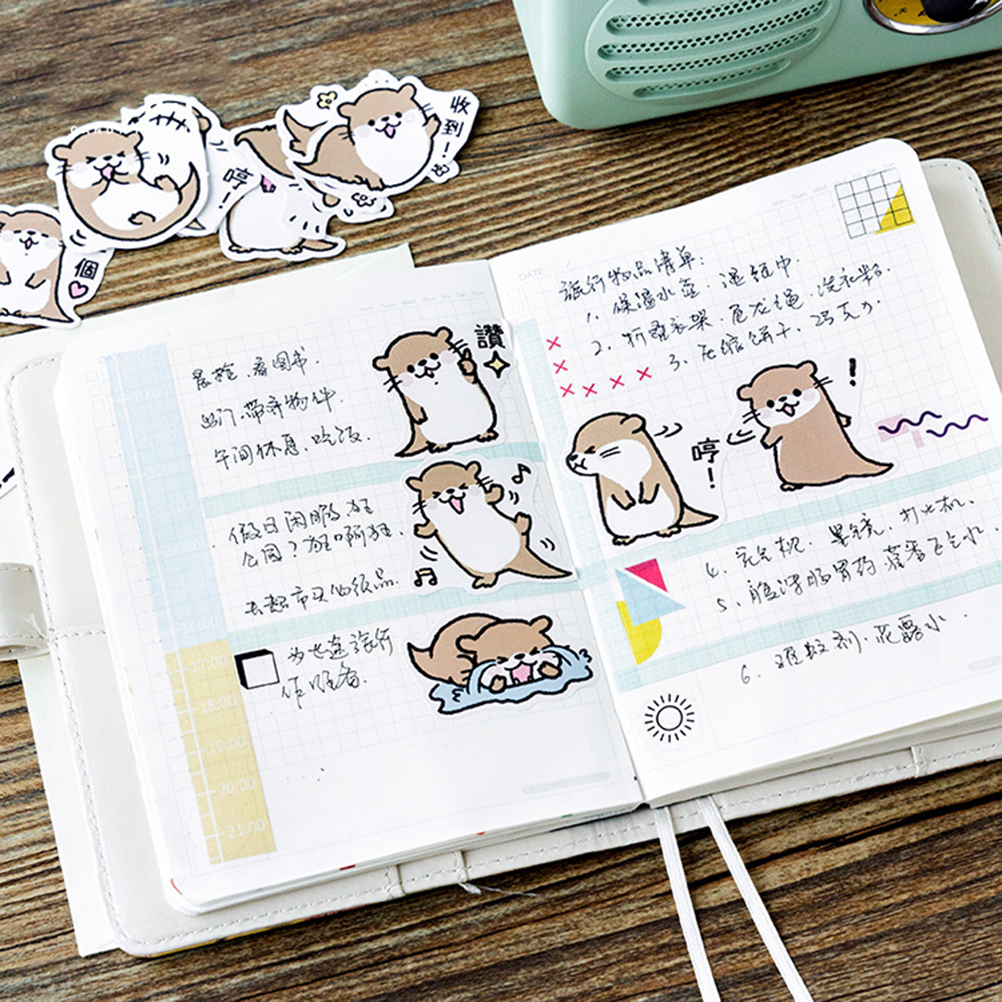 收到!
哼!
個
晨抢、看图书.
出门、带齐物件.
午间休息、吃饭.
讚
假日闲暇逛
公园?逛啊逛.
去超市买
为
旅行
作准备.
17:00
18:00
19:00
20:00
21:00
DATE:
旅行物品清单:
1、保温水壶、湿纸巾.
2、折叠衣架、尼龙绳、洗衣粉.
3、压缩饼干、巧克力.
哼!
!
4、充气机、墨镜、打火机、
5、腹泻肠胃药、藿香正气水.
6、驱蚊剂、花露水.